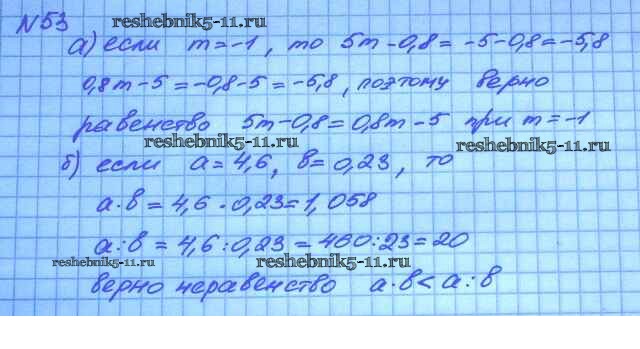 N53 reshebnik5-11.ru
а) если m = -1, то 5m - 0,8 = -5 - 0,8 = -5,8
0,8m - 5 = -0,8 - 5 = -5,8, поэтому верно
равенство 5m - 0,8 = 0,8m - 5 при m = -1
reshebnik5-11.ru reshebnik5-11.ru
б) если a = 4,6, b = 0,23, то
a · b = 4,6 · 0,23 = 1,058
a : b = 4,6 : 0,23 = 460 : 23 = 20
reshebnik5-11.ru reshebnik5-11.ru
верно неравенство a · b < a : b